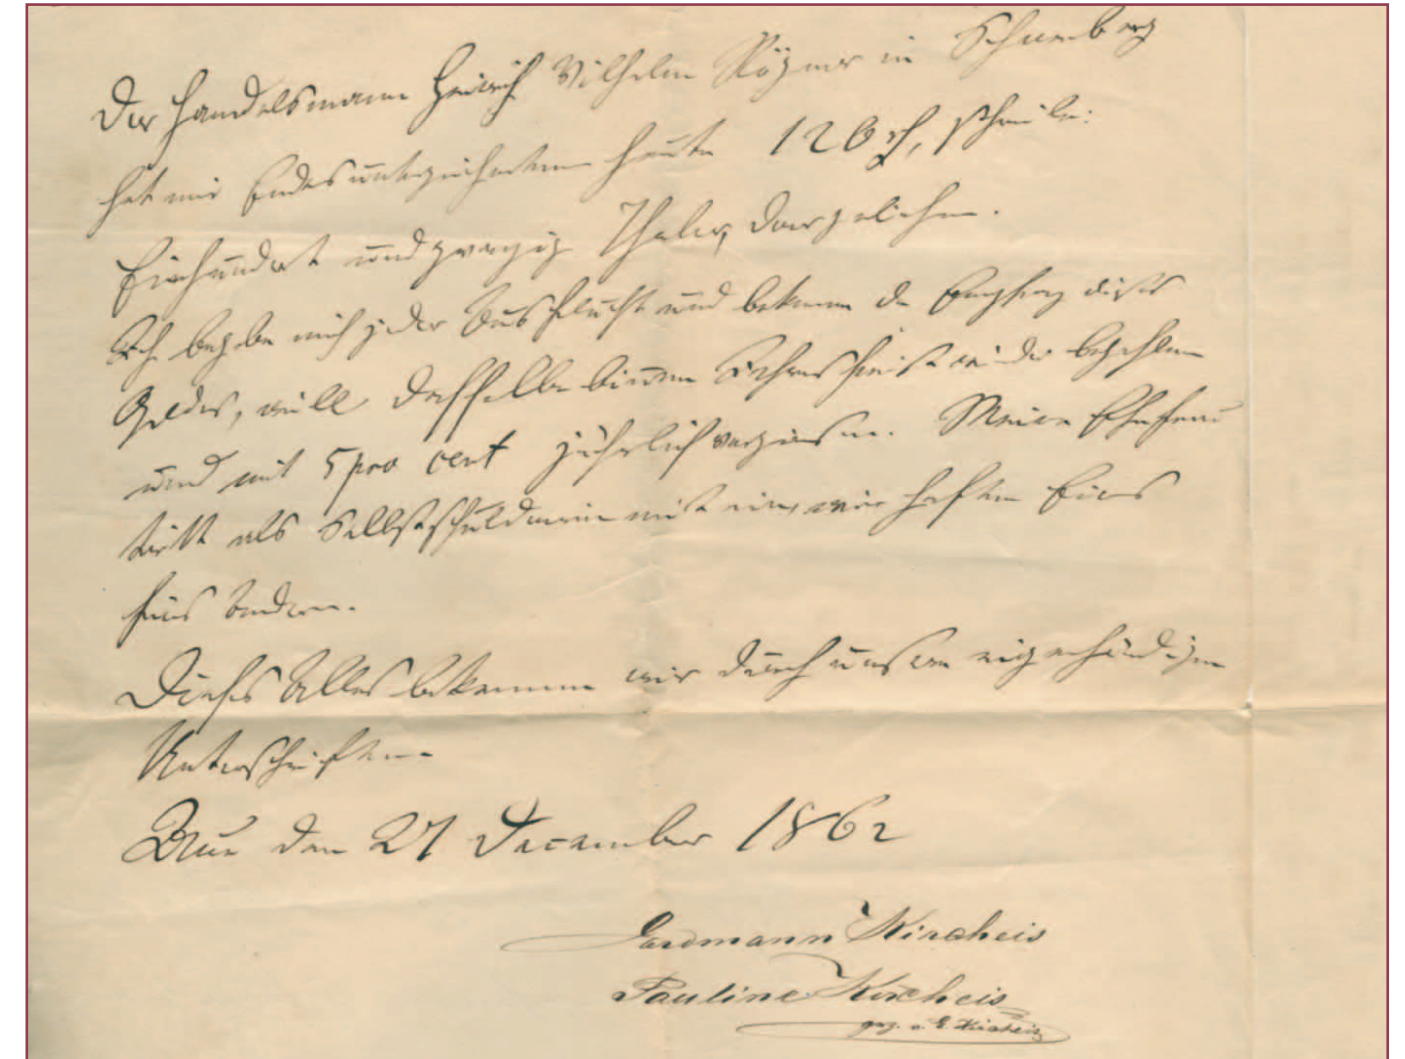 Der Handelsmann Heinrich Wilhelm in Schneeberg
hat mir Endesunterzeichneten heute 120 rf, schreibe:
Einhundert und zwanzig Thaler, dargeliehen.
Ich begebe mich jeder Ausflucht und bekenne den Empfang dieses
Geldes, will dasselbe binnen Jahresfrist wieder bezahlen
und mit 5 pro cent jährlich verzinsen. Meine Ehefrau
tritt als Selbstschuldnerin mit ein, wir haften Eins
fürs Andere.
Dieses Alles bekennen wir durch unsere eigenhändigen
Unterschriften.
Aue den 27 December 1862
Erdmann Kircheis
Pauline Kircheis
gez. v. E. Kircheis